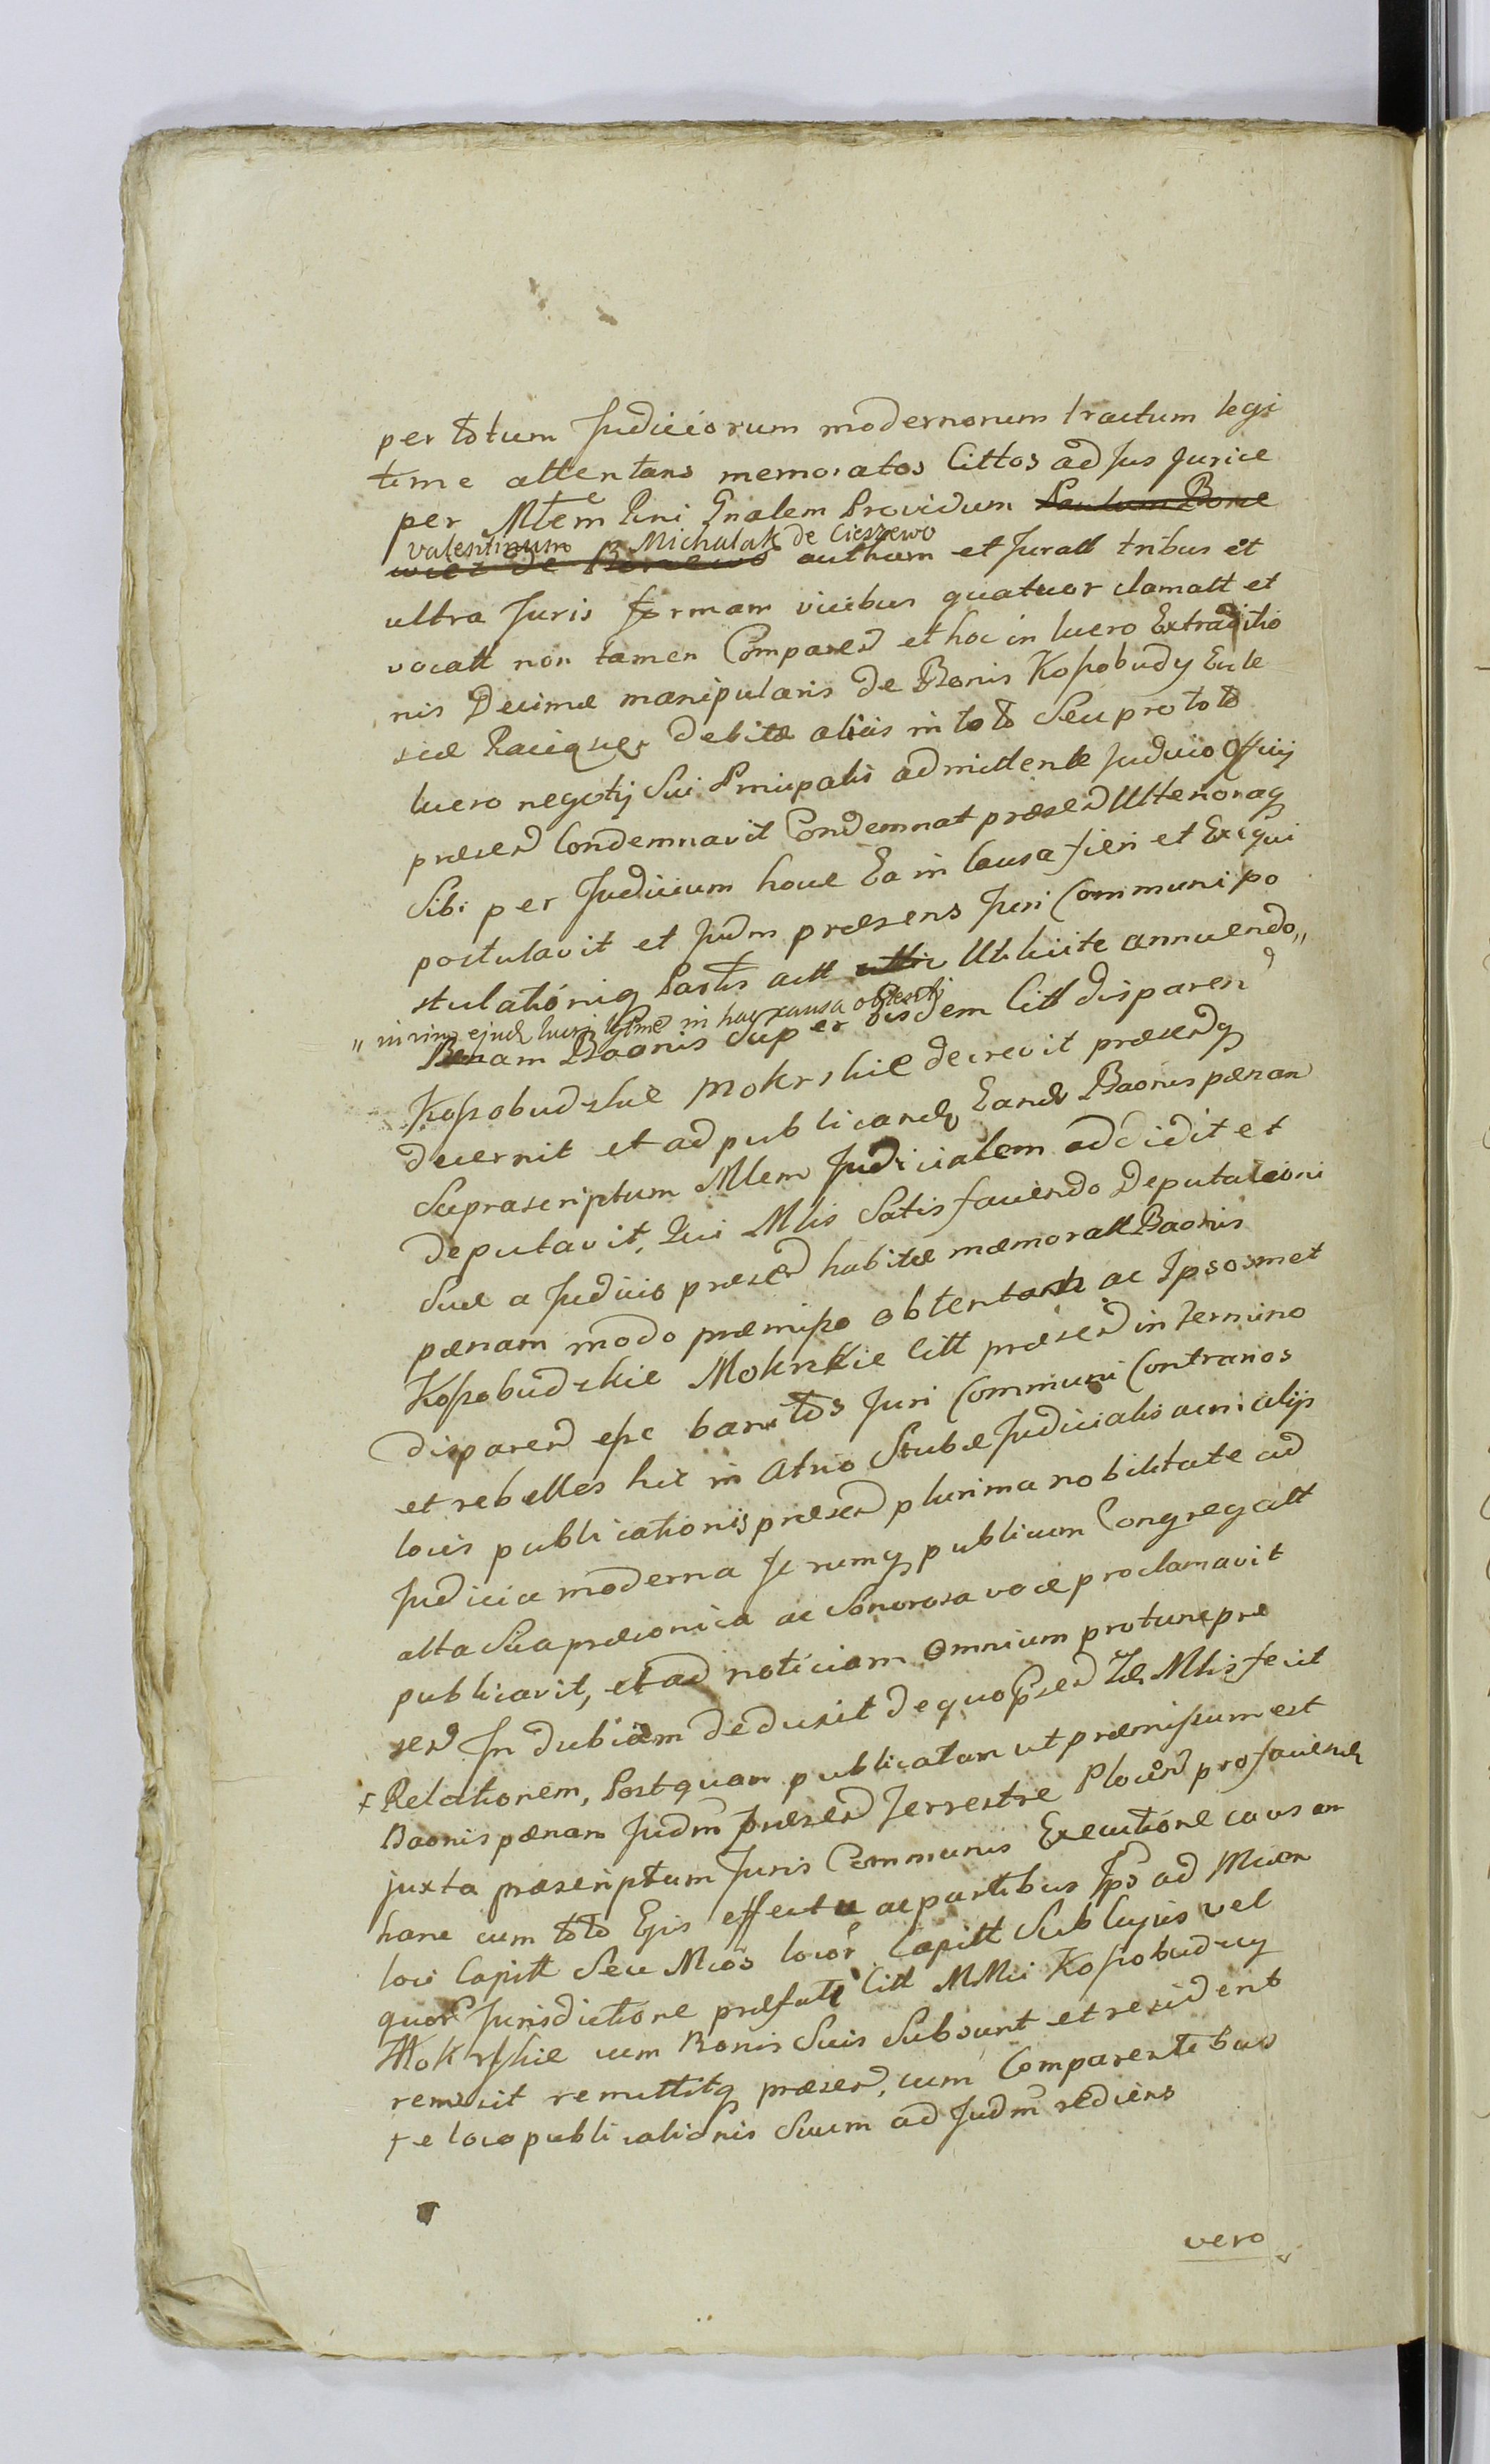 per totum Judiciorum modernorum tractum legi
time attentans memoratos Cittos ad Jus Jurice
per Mlem Rni Gnalem Providum Paulum Bone
valentinum Michalak de Cieszewo
wicz de Bonewo authum et Juratt tribus et
ultra Juris formam vicibus quatuor clamatt et
vocatt non tamen Comparen et hoc in lucro Extraditio
nis Decimæ manipularis de Bonis Kossobudy Eccle
siæ Raciąscę debitæ alias in toto Seu pro toto
lucro negotij Sui Principalis admittente Judicio Officij
præsen Condemnavit Condemnat præsen Ulterioraq
Sibi per Judicium hocce Ea in Causa fieri et Exequi
postulavit et Judm præsens Juri Communi po
stulationiq Partis actt Uti licite annuendo„
„ in vim ejusd lucri lgtme in hac causa obtenti
Pænam Baonis Super eisdem Citt disparen
Kossobudzkie Mokrskie decrevit præsenq
decernit et ad publicand Eand Baonis pænam
Suprascriptum Mlem Judicialem addidit et
deputavit, Qui Mlis Satisfaciendo Deputationi
Suæ a Judicio præsen habitæ memoratt Baonis
pænam modo præmisso obtentam ac Ipsosmet
Kossobudzkie Mokrskie Citt præsen in termino
disparen esse banitos Juri Communi Contrarios
et rebelles hic in Atrio Stubæ Judicialis ac in alijs
locis publicationis præsen plurima nobilitate ad
Judicia moderna Forumq publicum Congregatt
alta Sua præconica ac Sonorosa voce proclamavit
publicavit, et ad noticiam Omnium pro tunc præ
sen Indubiam deduxit de quo Præsen Id Mlis fecit
+ Relationem, Postquam publicatam ut præmissum est
Baonis pænam Judm præsen Terrestre Plocen pro faciend
juxta præscriptum Juris Communis Executione causam
hanc cum toto Ejus effectu ac partibus Ipso ad Mcum
loci Capitt Seu Mcos locor Capitt Sub cujus vel
quor Jurisdictione præfati Citt MMci Kossobudzcy
Mokrskie cum Bonis Suis Subsunt et resident
remisit remittitq præsen, cum Comparentibus
+ e loco publicationis Suum ad Judm rediens
vero